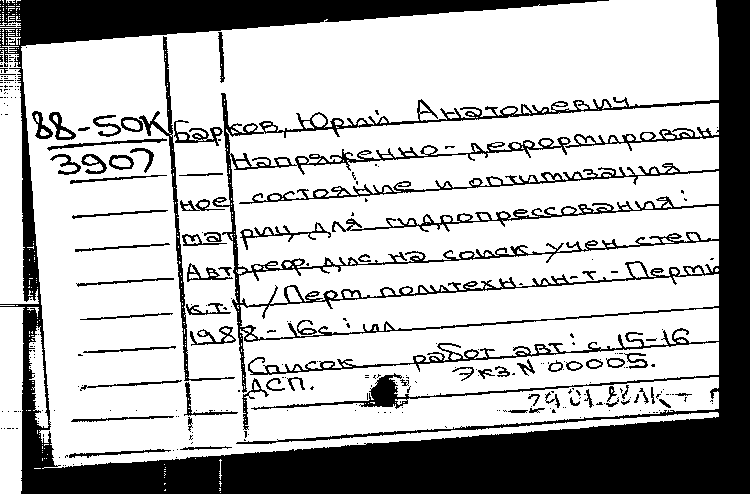 88-50К
3907
Барков, Юрий Анатольевич.
Напряженно-деформирован-
ное состояние и оптимизация
матриц для гидропрессования:
Автореф. дис. на соиск. учен. степ.
к.т.н /Перм. политехн. ин-т.-Пермь
1988.-16с.: ил.
Список работ авт: с.15-16
ДСП. Экз. N 00005.